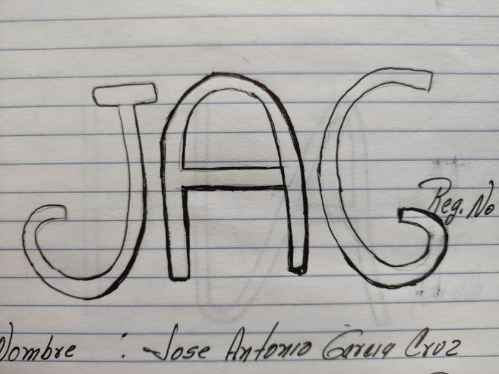 JAG
Reg. No
Nombre : Jose Antonio Garcia Cruz